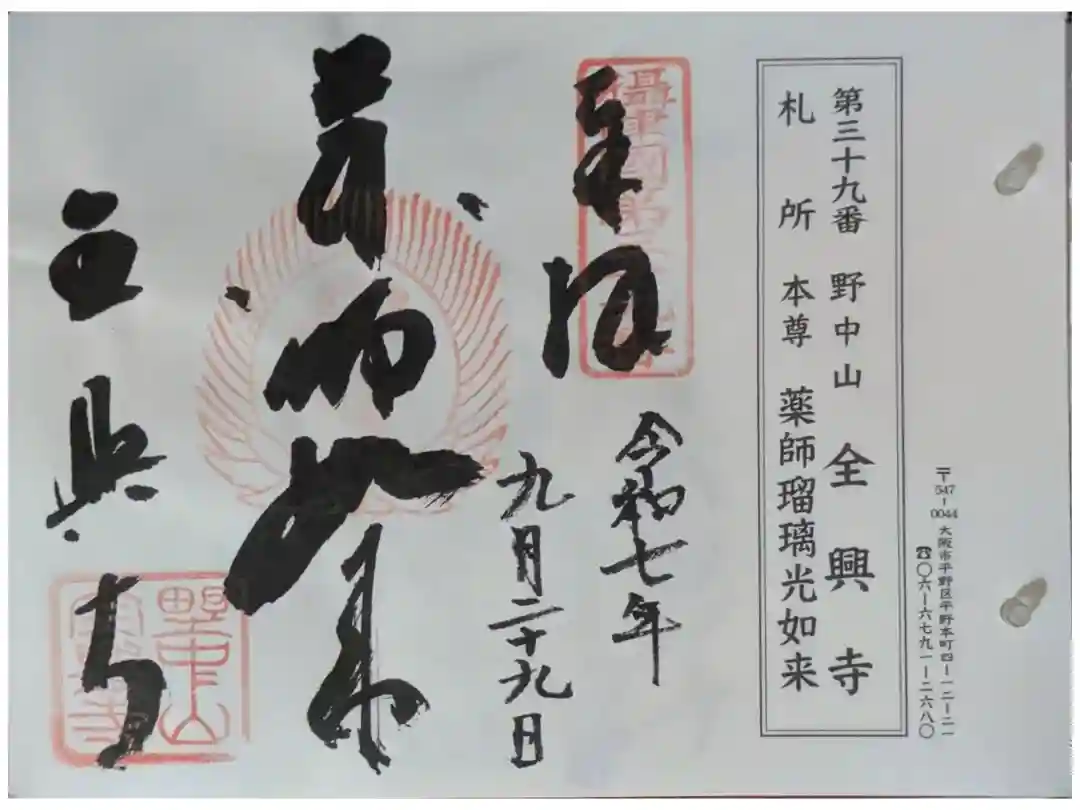 〒547-0044 大阪市平野区平野本町四-一二-二一
☎〇六-六七九一-二六八〇
第三十九番 野中山 全興寺
札所本尊 薬師瑠璃光如来
奉拝
令和七年
九月二十九日
薬師如来
全興寺
野中山